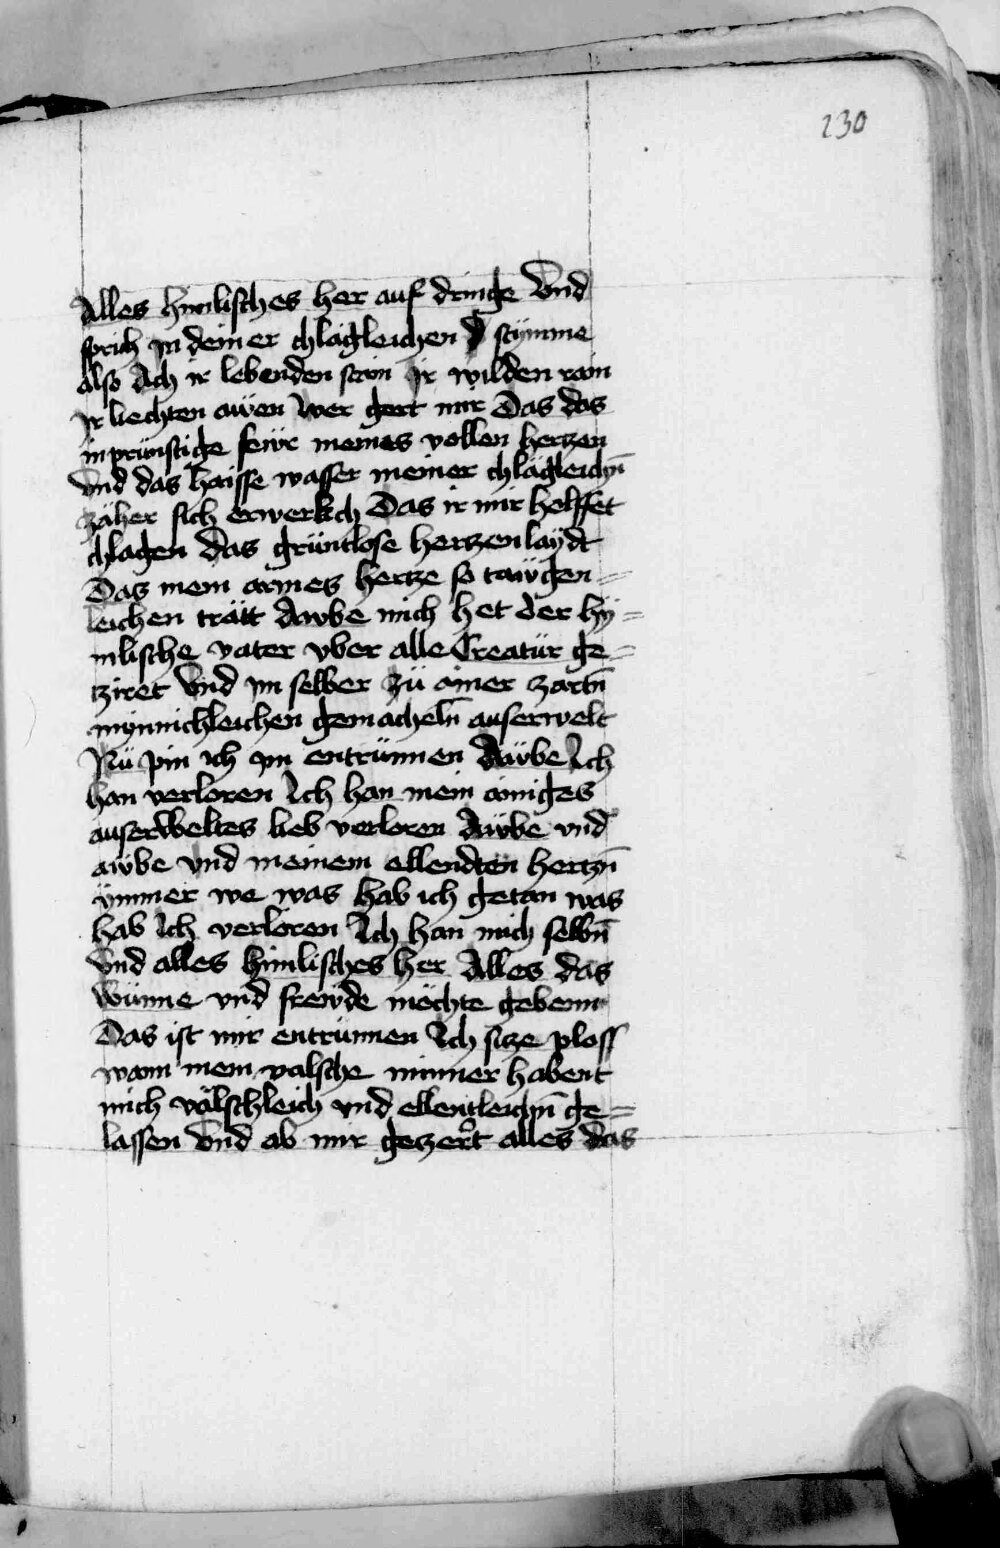 230
Alles himlisches her auf dringe Vnd
sprich in deinier chlägleichen stymme
also Ach ir lebenden stain Ir wilden rain
Ir liechten awen wer gert mir Das das
inprünstige fewr meines vollen hertzen
Vnd das haisse wasser meiner chlägleichn̄
zäher sich erwerkch Das ir mir helffet
chlagen das grüntlose hertzenlaydt
Das mein armes hertze so tawgen=
leichen trätt Awbe mich het der hy=
mlische vater vber alle Creatür ge=
tziret Vnd im selber zü ainer zartn̄
mynnichleichen gemacheln̄ auserwelt
Nü pin ich ym entrünnen Awbe Ich
han verloren Ich han mein ainiges
auserWeltes lieb verloren Awbe vnd
awbe vnd meinem ellendten hertzn̄
ymmer we was hab ich getan was
hab Ich verloren Ich han mich selbn̄
Vnd alles himlisches her Alles das
wünne vnd frewde möchte gebenn
Das ist mir entrünnen Ich sitze ploss
wann mein valsche minner habent
mich välschleich vnd ellentleichn̄ ge=
lassen Vnd ab mir gezert alles das